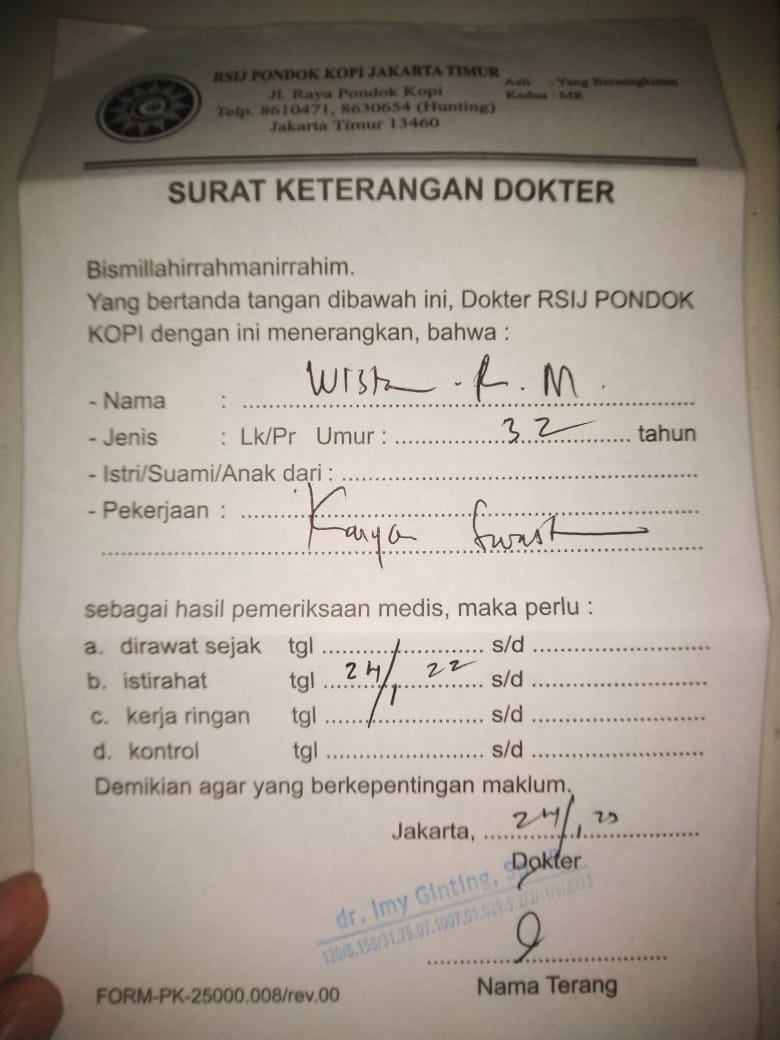 RSIJ PONDOK KOPI JAKARTA TIMUR
Jl. Raya Pondok Kopi
Telp. 8610471, 8630654 (Hunting)
Jakarta Timur 13460
Asli : Yang Bersangkutan
Kedua : MR
SURAT KETERANGAN DOKTER
Bismillahirrahmanirrahim.
Yang bertanda tangan dibawah ini, Dokter RSIJ PONDOK
KOPI dengan ini menerangkan, bahwa :
- Nama : R. M.
- Jenis : Lk/Pr Umur : 32 tahun
- Istri/Suami/Anak dari :
- Pekerjaan : Karya Swast
sebagai hasil pemeriksaan medis, maka perlu :
a. dirawat sejak tgl s/d
b. istirahat tgl 24/1 22 s/d
c. kerja ringan tgl s/d
d. kontrol tgl s/d
Demikian agar yang berkepentingan maklum.
Jakarta, 24/1
Dokter
dr. Imy Ginting,
Nama Terang
FORM-PK-25000.008/rev.00